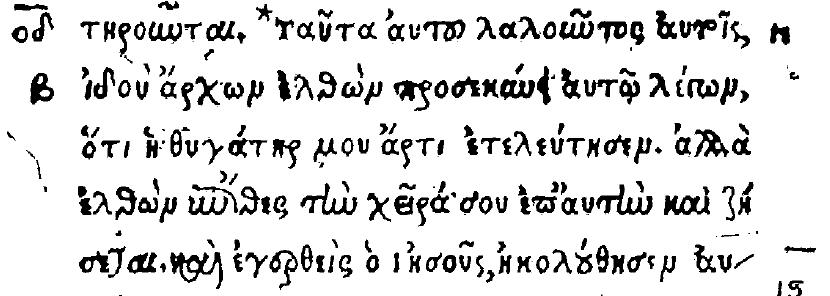 οδ τηροῦνται. *ταῦτα αὐτοῦ λαλοῦντος αὐτοῖς, η
β ἰδοὺ ἄρχων ἐλθὼν προσεκύνει αὐτῷ λέγων,
ὅτι ἡ θυγάτηρ μου ἄρτι ἐτελεύτησεν. ἀλλὰ
ἐλθὼν ἐπίθες τὴν χεῖρά σου ἐπ' αὐτὴν καὶ ζή
σεται. καὶ ἐγερθεὶς ὁ ἰησοῦς, ἠκολούθησεν αὐ